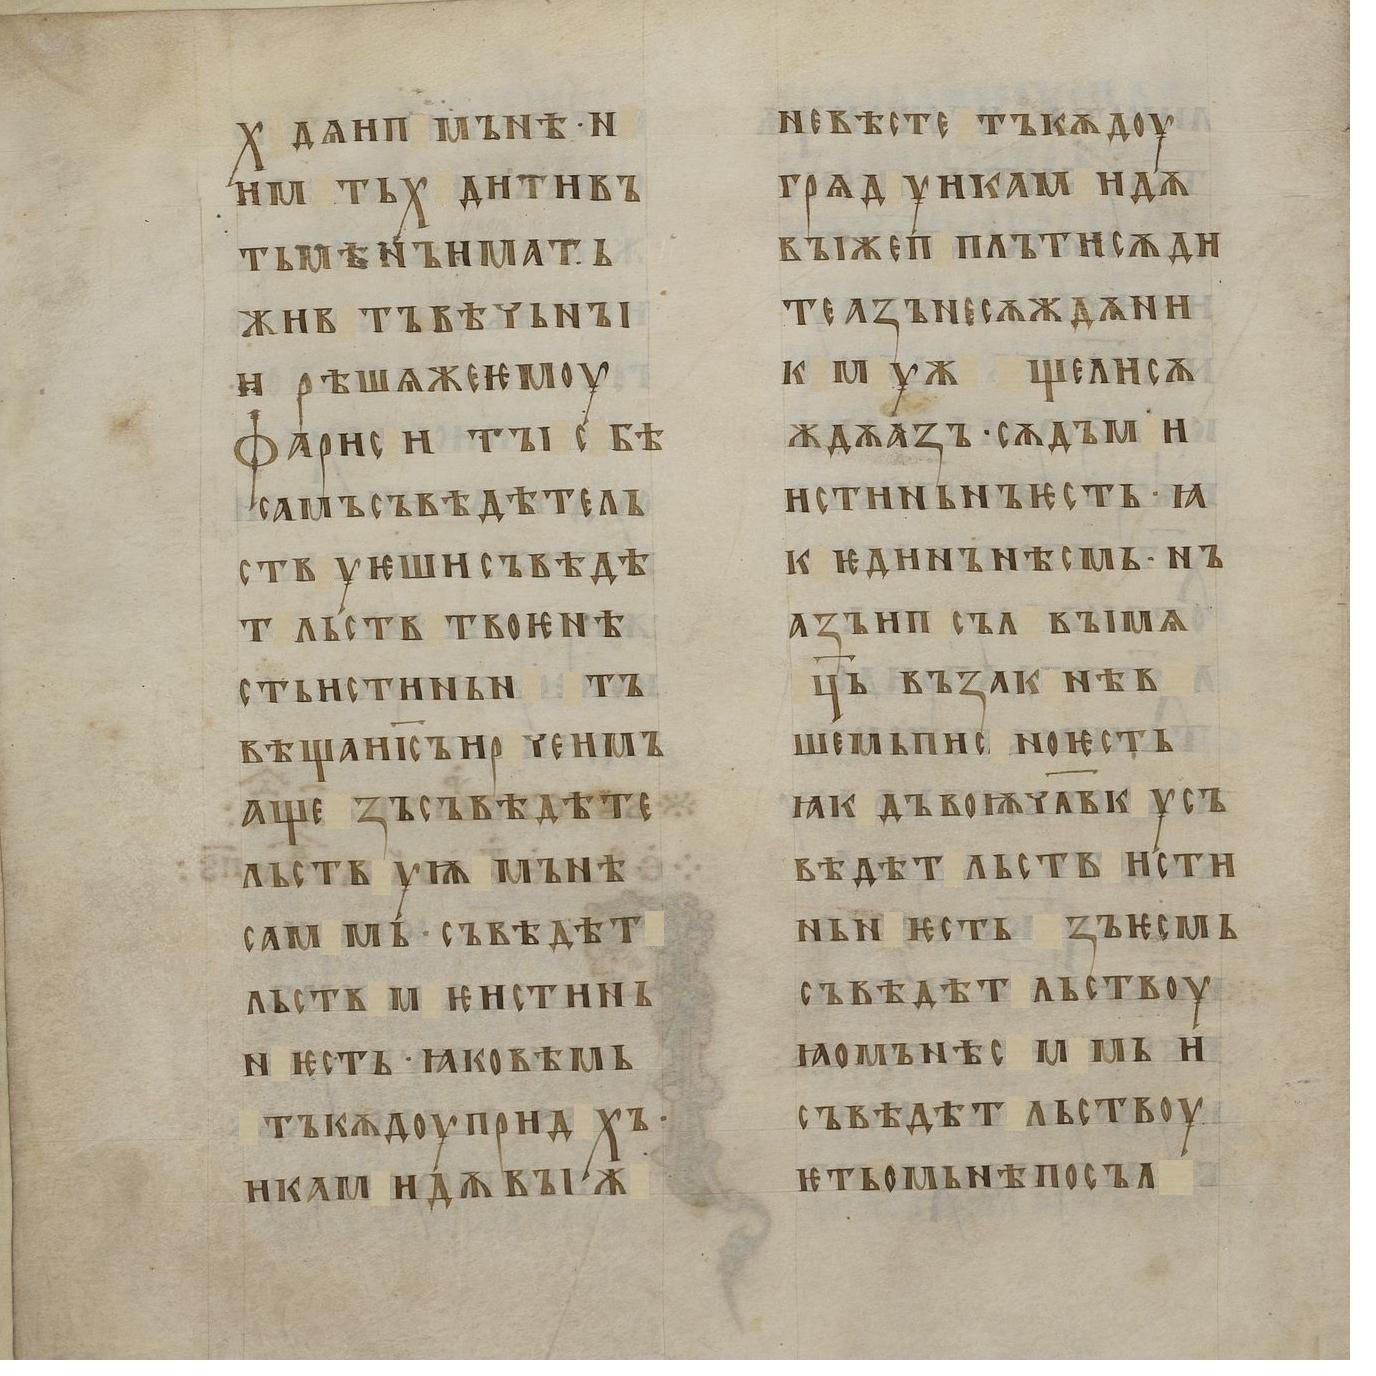 Х ДѦИП МЪНѢ·И
ИМ ТЬХ ДИТИВЪ
ТЬМѢНЪИМАТЬ
ЖИВ ТЪВѢЧЬНЪІ
И РѢШѦЖЕѤМОУ
ФАРИС И ТЪІ С БѢ
САМЪСЪВѢДѢТЕЛЬ
СТВ УѤШИСЪВѢДѢ
Т ЛЬСТВ ТВОѤНѢ
СТЬИСТИНЬН ТЪ
ВѢЩАИІ҃СЪИР ЧЕИМЪ
АЩЕ ЗЪСЪВѢДѢТЕ
ЛЬСТВ УѬ МЪНѢ
САМ МЬ·СЪВѢДѢТ
ЛЬСТВ М ѤИСТИНЬ
Н ѤСТЬ·ꙖКОВѢМЬ
ТЪКѪДОУПРИД ХЪ·
ИКАМ ИДѪВЪІЖ
НЕВѢСТЕ ТЪКѪДОУ
ГРѦД УИКАМ ИДѪ
ВЪІЖЕП ПЛЪТИСѪДИ
ТЕАЗЪНЕСѪЖДѪНИ
К М УЖ ЩЕЛИСѪ
ЖДѪАЗЪ·СѪДЪМ И
ИСТИНЬНЪѤСТЬ·Ꙗ
К ѤДИНЪНѢСМЬ·НЪ
АЗЪИП СЪЛ ВЪІМѦ
Ц҃Ь ВЪЗАК НѢВ
ШЕМЬПИС НОѤСТЬ
ꙖК ДЪВОЮЧЛ҃ВК УСЪ
ВѢДѢТ ЛЬСТВ ИСТИ
НЬН ѤСТЬ ЗЪѤСМЬ
СЪВѢДѢТ ЛЬСТВОУ
ꙖОМЪНѢС М МЬ И
СЪВѢДѢТ ЛЬСТВОУ
ѤТЬОМЬНѢПОСЪЛ